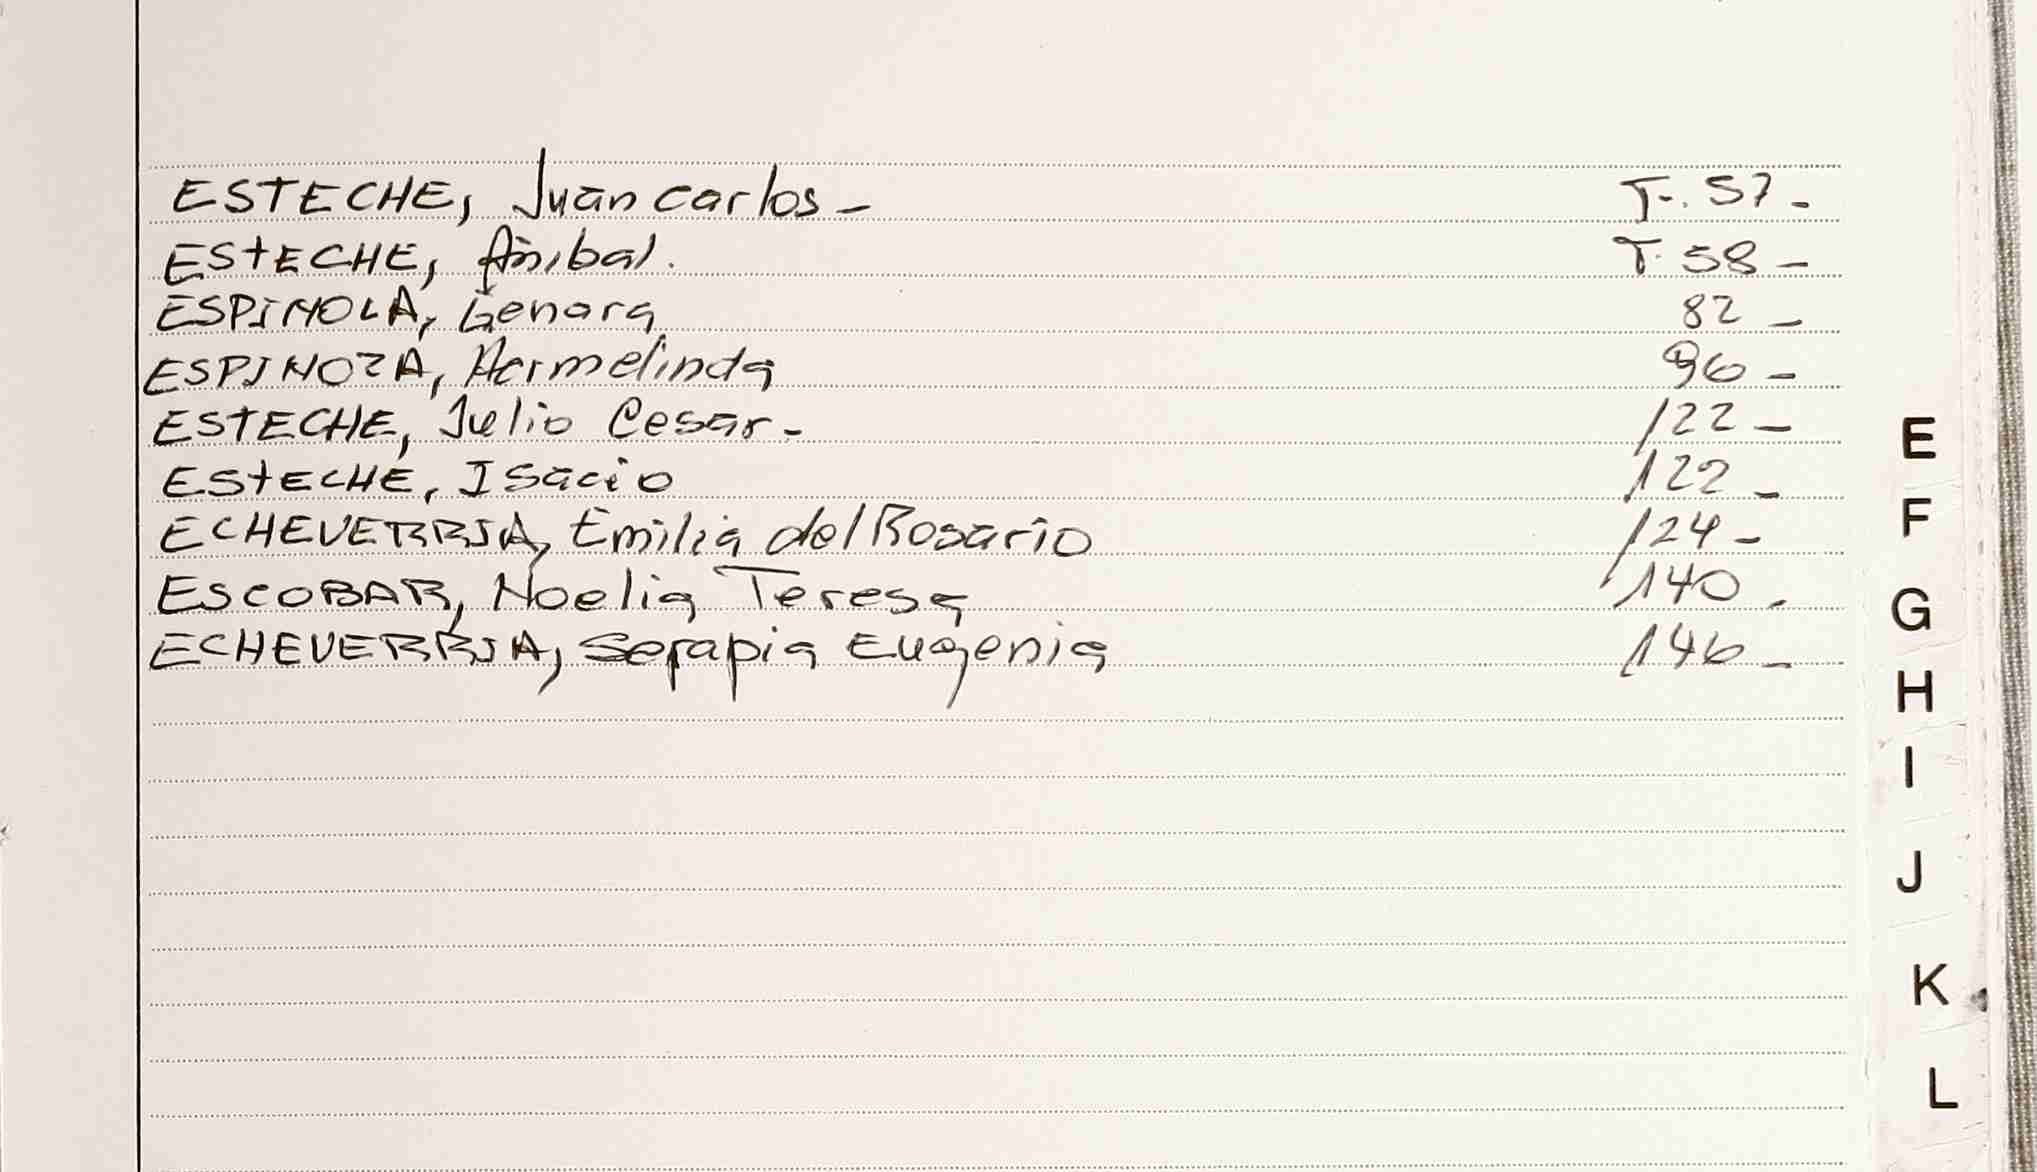 ESTECHE, Juan carlos - T-. 57 -
ESTECHE, Anibal. T. 58 -
ESPINOLA, Genara 82 -
ESPINOZA, Hermelinda 96 -
ESTECHE, Julio Cesar - 122 -
ESTECHE, Isacio 122 -
ECHEVERRIA, Emilia del Rosario 124 -
ESCOBAR, Noelia Teresa 140 -
ECHEVERRIA, Serapia Eugenia 146 -
E
F
G
H
I
J
K
L